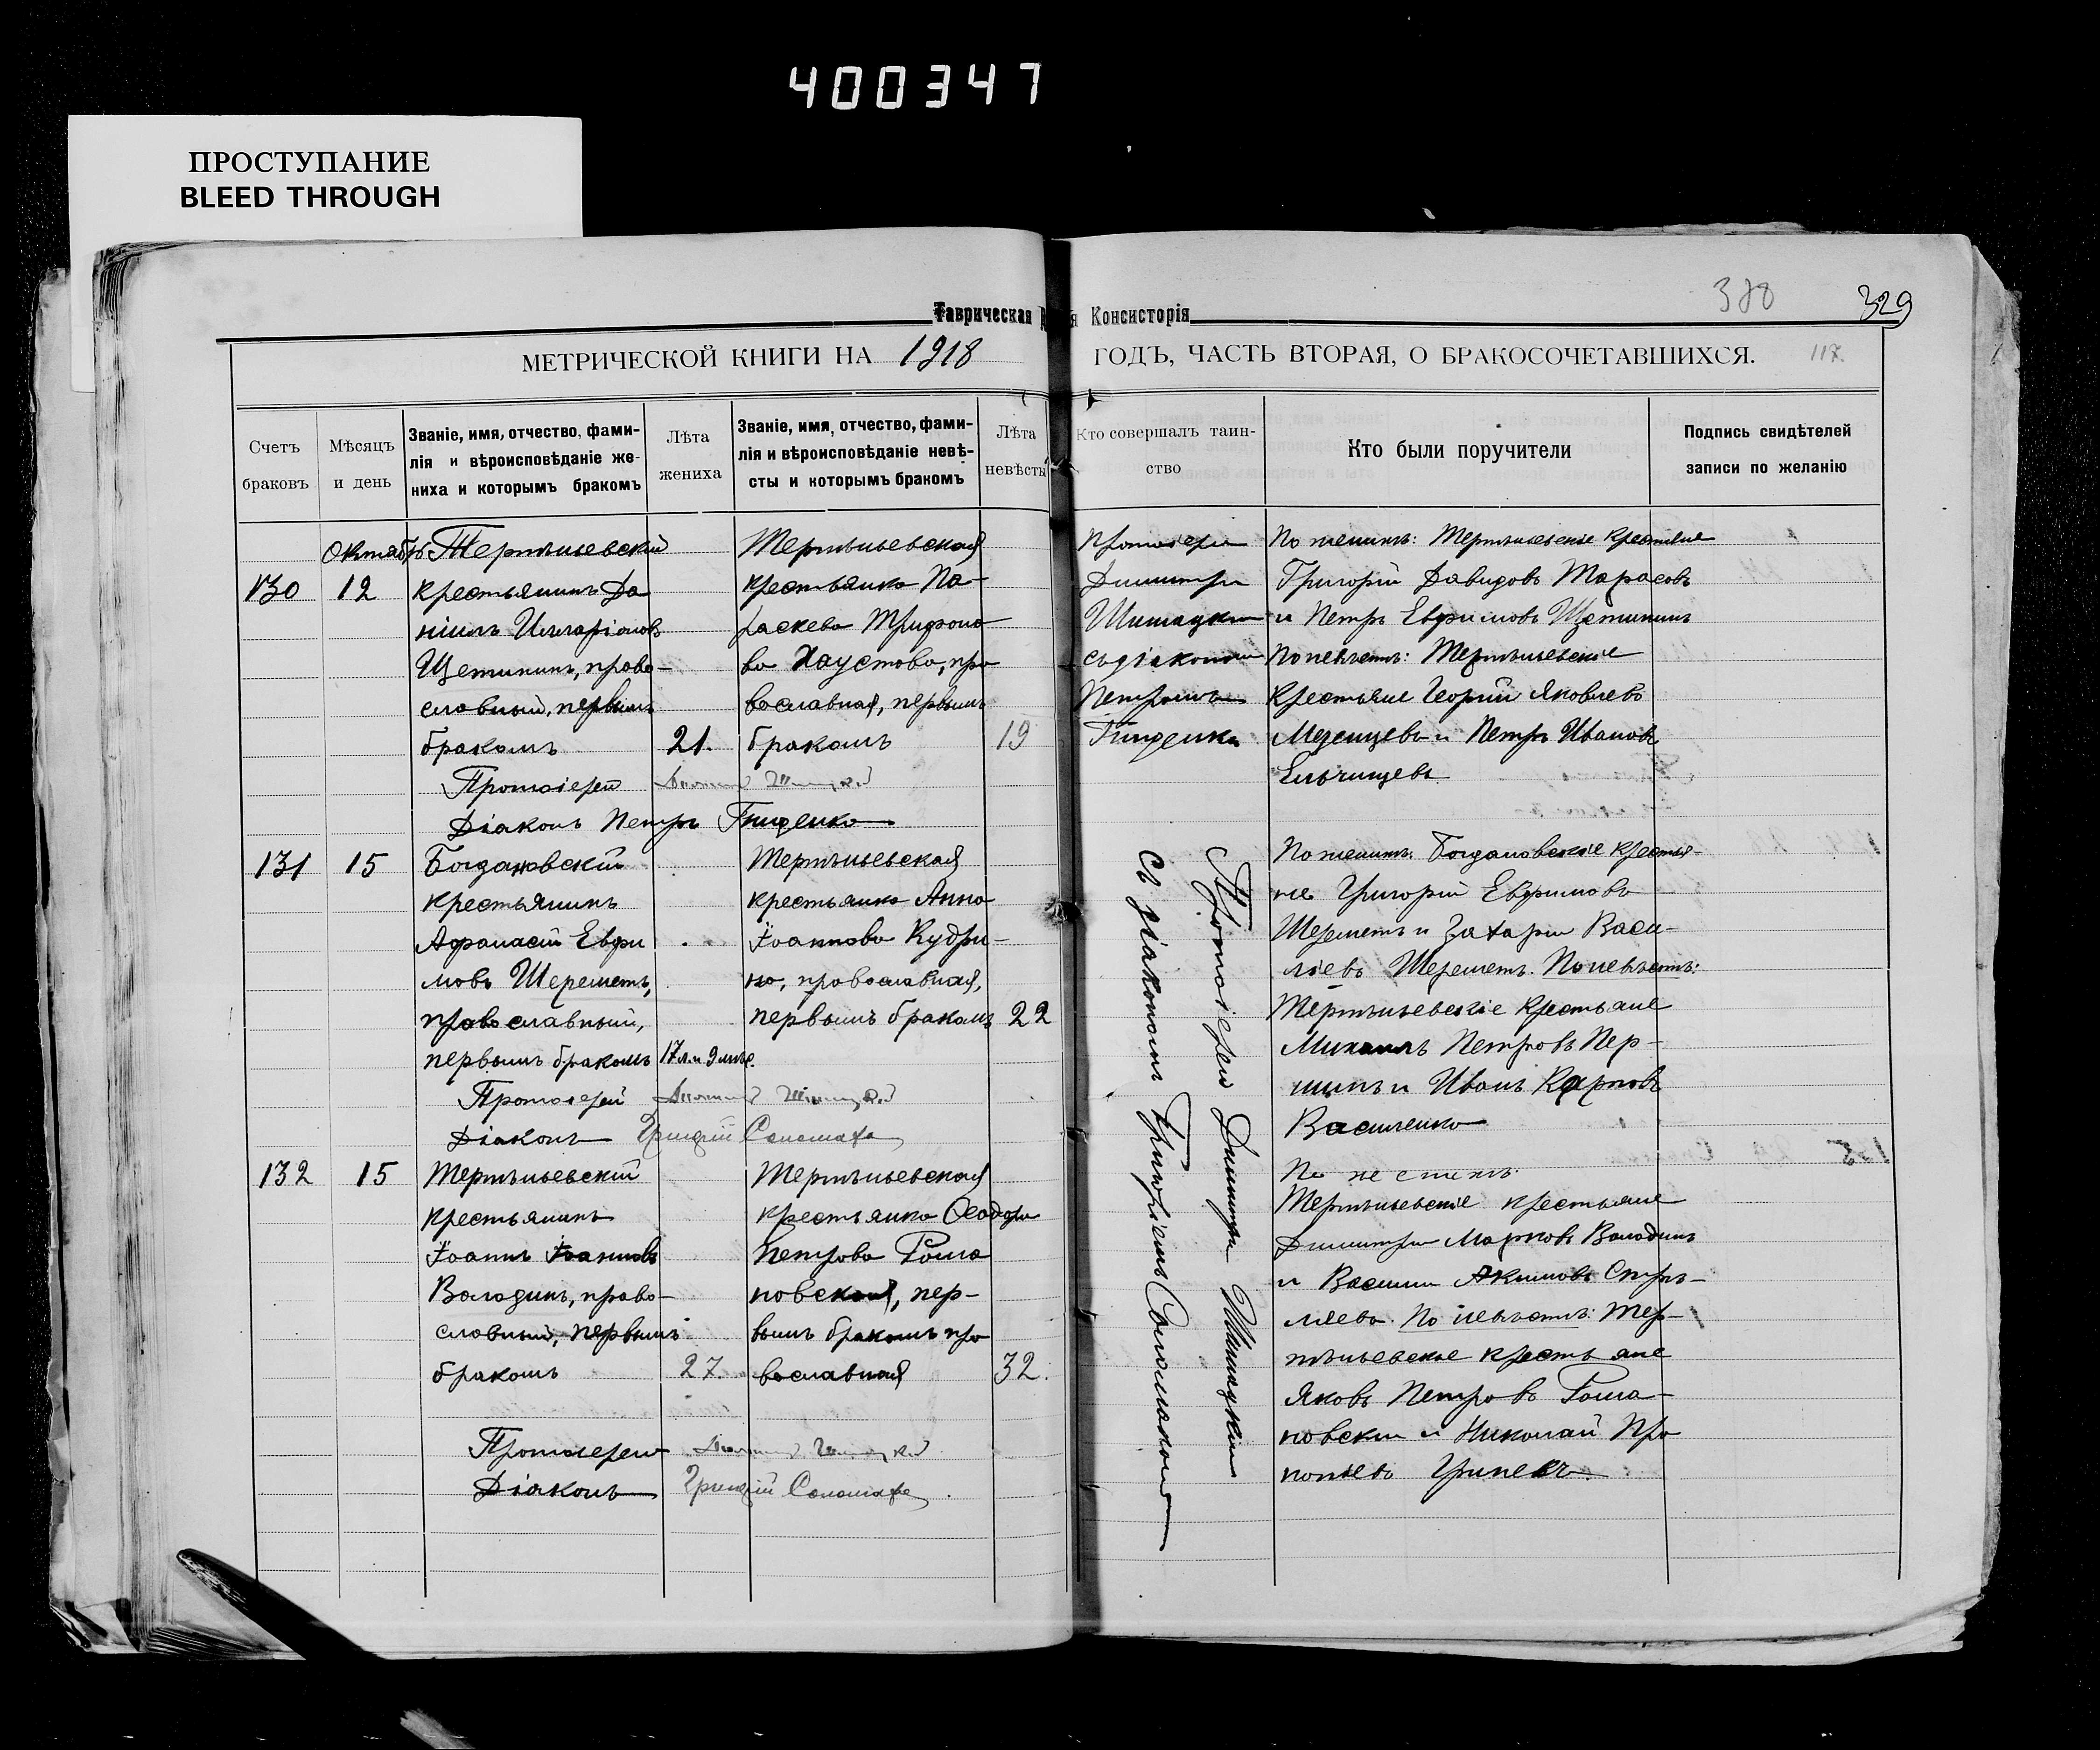 400347
ПРОСТУПАНИЕ
BLEED THROUGH
329
Таврическая Консисторія
МЕТРИЧЕСКОЙ КНИГИ НА 1918 ГОДЪ, ЧАСТЬ ВТОРАЯ, О БРАКОСОЧЕТАВШИХСЯ. 117.
Счетъ
браковъ
Мѣсяцъ
и день
Званіе, имя, отчество, фами-
лія и вѣроисповѣданіе же-
ниха и которымъ бракомъ
Лѣта
жениха
Званіе, имя, отчество, фами-
лія и вѣроисповѣданіе невѣ-
сты и которымъ бракомъ
Лѣта
невѣсты
Кто совершалъ таин-
ство
Кто были поручители
Подпись свидѣтелей
записи по желанію
130
Октябрь
12
Терпѣньевскій
крестьянинъ Да
ніилъ Илларіоновъ
Щетининъ, право-
славный, первымъ
бракомъ
21.
Терпѣньевская
крестьянка Па-
раскева Трифоно
ва Хаустова, пра
вославная, первымъ
бракомъ
19
Протоіерей
Димитрій
Шишацкій
съ діакономъ
Петромъ
Гниденко
По женихѣ: Терпѣньевскіе крестьяне
Григорій Давидовъ Тарасовъ
и Петръ Евфимовъ Щетининъ
По невѣстѣ: Терпѣньевскіе
крестьяне Георгій Яковлевъ
Мезенцевъ и Петръ Ивановъ
Ельчищевъ
Протоіерей
Діаконъ Петръ Гниденко
131
15
Богдановскій
крестьянинъ
Афанасій Евфи
мовъ Шереметъ,
православный,
первымъ бракомъ
17 л. и 9 мѣс.
Терпѣньевская
крестьянка Анна
Іоаннова Кудри-
на, православная,
первымъ бракомъ
22
Протоіерей Димитрій Шишацкій
Съ діакономъ Григоріемъ
По женихѣ: Богдановскіе крестья-
не Григорій Евфимовъ
Шереметъ и Захарій Васи-
ліевъ Шереметъ. По невѣстѣ:
Терпѣньевскіе крестьяне
Михаилъ Петровъ Пер-
шинъ и Иванъ Карповъ
Василенко
Протоіерей
Діаконъ Григорій Соломаха
132
15
Терпѣньевскій
крестьянинъ
Іоаннъ Іоанновъ
Володинъ, право-
славный, первымъ
бракомъ
27.
Терпѣньевская
крестьянка Ѳеодора
Петрова Рома
новская, пер-
вымъ бракомъ пра
вославная
32.
По женихѣ:
Терпѣньевскіе крестьяне
Димитрій Марковъ Володинъ
и Василій Акимовъ Стрѣ-
ляевъ. По невѣстѣ: Тер-
пѣньевскіе крестьяне
Яковъ Петровъ Рома-
новскій и Николай Про
копіевъ
Протоіерей
Діаконъ Григорій Соломаха